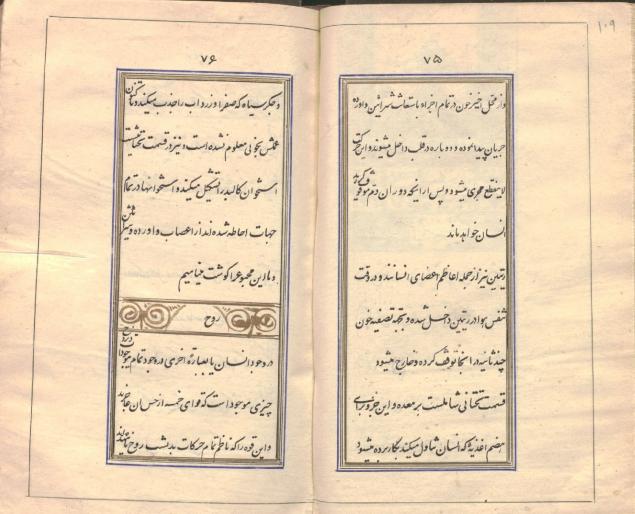 ۱۰۹
۷۵
و از محل خیز خون در تمام اجزاء باستعانت شرائین و اورده
جریان پیدا نموده و دوباره در قلب داخل میشوند و این حرکت
لاینقطع مجری میشود و پس از اینکه دوران دم موقوف گردید
انسان خواهد ماند
ریتین نیز از جمله اعاظم اعضای انسانند و در وقت
تنفس هوا در ریتین داخل شده و بجهة تصفیه خون
چند ثانیه در آنجا توقف کرده و خارج میشود
قسمت تحتانی شاملست بر معده و این جزو برای
هضم اغذیه که انسان تناول میکند بکار برده میشود
۷۶
و جگر سیاه که صفرا و زرداب را جذب میکند و تاکنون
عملش بخوبی معلوم نشده است و نیز در قسمت تحتانیست
استخوان کالبد را تشکیل میکند و استخوانها در تمام
جهات احاطه شده اند از اعصاب و اورده و شرائین
و ما این مجموعه را گوشت مینامیم
روح
در وجود انسان یا بعبارة اخری در وجود تمام موجودات
چیزی موجود است که قوای خمسه از حس آن عاجزند
و این قوه را که ناظم تمام حرکات بدنست روح نامیده‌اند